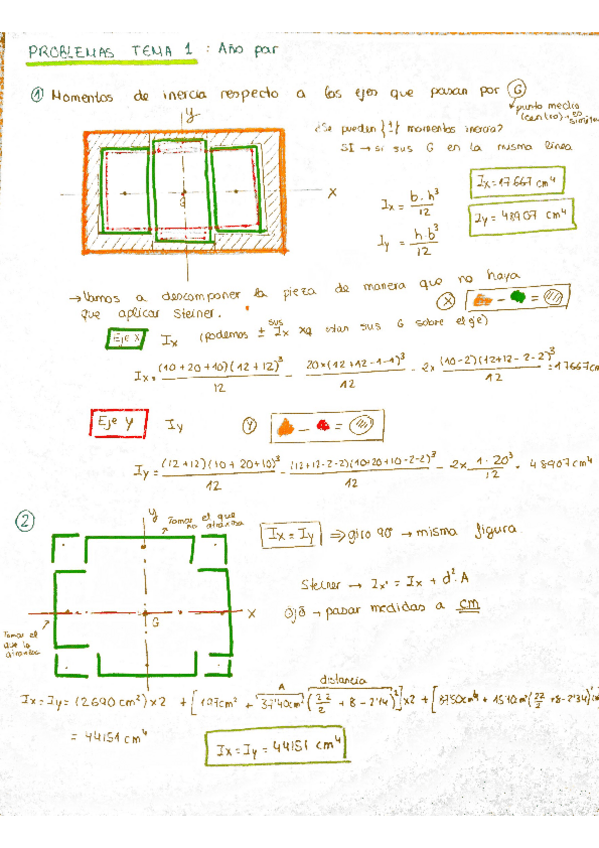 PROBLEMAS TEMA 1 : Año par
① Momentos de inercia respecto a los ejes que pasan por G
punto medio
(centro)
y
¿Se pueden {±} momentos inercia?
SI → si sus G en la misma línea
X
G
Ix = b·h³/12
Ix = 17667 cm⁴
Iy = h·b³/12
Iy = 48907 cm⁴
→ Vamos a descomponer la pieza de manera que no haya
que aplicar Steiner.
X
- =
Eje X Ix (podemos ± sus Ix xq están sus G sobre el eje)
Ix = (10+20+10)(12+12)³/12 - 20×(12+12-1-1)³/12 - 2× (10-2)(12+12-2-2)³/12 = 17667 cm
Eje y Iy Y
- =
Iy = (12+12)(10+20+10)³/12 - (12+12-2-2)(10+20+10-2-2)³/12 - 2× 1·20³/12 = 48907 cm⁴
②
y
Tomar el que
no
Ix = Iy ⇒ giro 90º → misma figura
Steiner → Ix' = Ix + d²·A
G
X
ojo → pasar medidas a cm
Tomar el
que lo
A distancia
Ix = Iy = (2690 cm²) × 2 + [197cm² + 37'40cm²(22/2 + 8 - 2'14)²] × 2 + [
= 44151 cm⁴
Ix = Iy = 44151 cm⁴